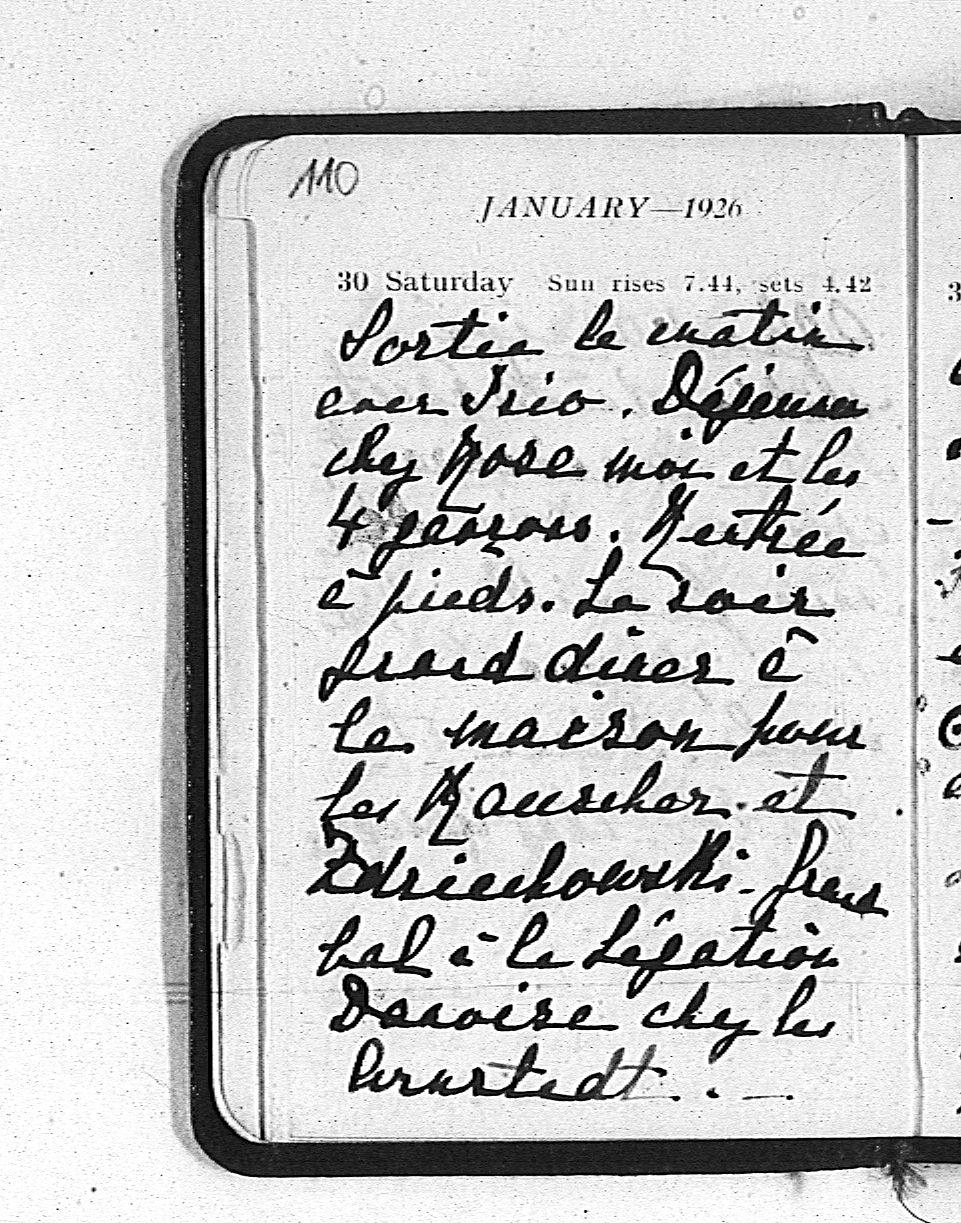 110
JANUARY—1926
30 Saturday Sun rises 7.44, sets 4.42
Sortie le matin
avec Trio. Déjeuner
chez Rose moi et les
4 garçons. Rentrée
à pieds. Le soir
grand diner à
la maison pour
les Rauscher et
Zdziechowski - grand
bal à la Légation
Danoise chez les